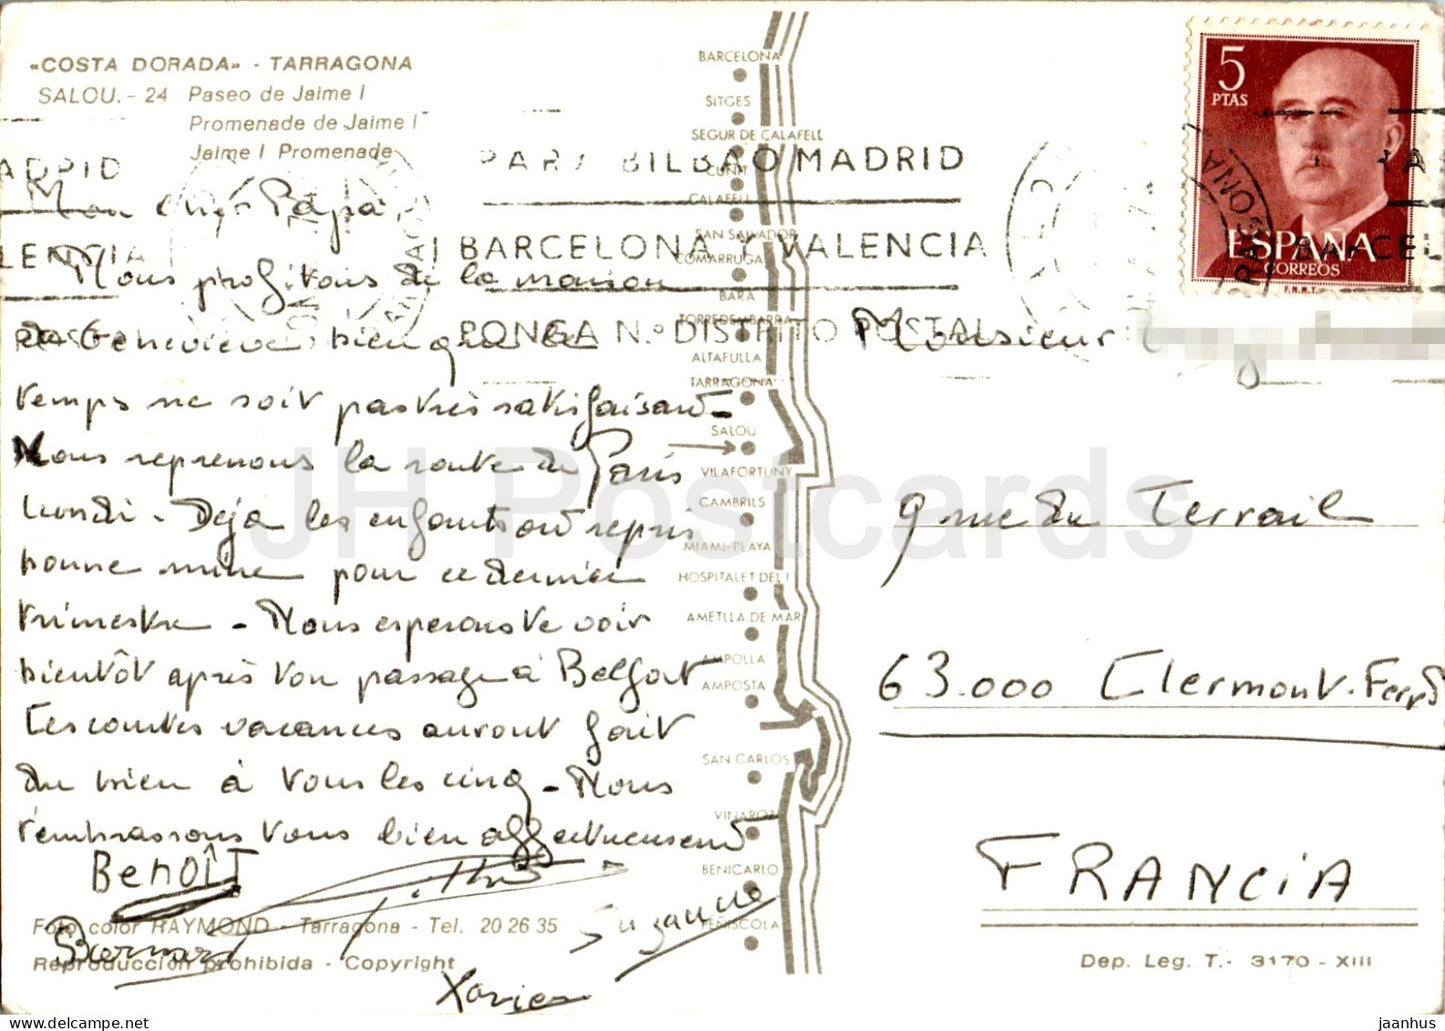 «COSTA DORADA» - TARRAGONA
SALOU. - 24 Paseo de Jaime I
Promenade de Jaime I
Jaime I Promenade
Mon cher Papa
Nous profitons de la maison
de Geneviève bien que le
temps ne soit pas très satisfaisant -
Nous reprenons la route de Paris
lundi - Déjà les enfants ont repris
bonne mine pour ce dernier
trimestre - Nous esperons te voir
bientôt après ton passage à Belfort
Ces courtes vacances auront fait
du bien à tous les cinq - Nous
t'embrassons tous bien affectueusement
BENOÎT
Bernard
Suzanne
Xavier
Foto color RAYMOND - Tarragona - Tel. 20 26 35
Reproducción prohibida - Copyright
BARCELONA
SITGES
SEGUR DE CALAFELL
CUNIT
CALAFELL
SAN SALVADOR
COMARRUGA
BARA
TORREDEMBARRA
ALTAFULLA
TARRAGONA
SALOU
VILAFORTUNY
CAMBRILS
MIAMI-PLAYA
HOSPITALET DEL I
AMETLLA DE MAR
AMPOLLA
AMPOSTA
SAN CARLOS
VINAROZ
BENICARLO
PEÑISCOLA
PARA BILBAO MADRID
BARCELONA Y VALENCIA
PONGA N.º DISTRITO POSTAL
MADRID
VALENCIA
5
PTAS
ESPAÑA
CORREOS
F.N.M.T.
BARCEL
Monsieur
9 rue du Terrail
63.000 Clermont-Ferrd
FRANCIA
Dep. Leg. T. - 3170 - XIII
JH Postcards
jaanhus